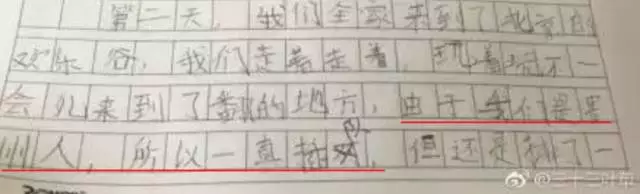 第二天，我们全家来到了北京的
欢乐谷，我们走着走着，玩着玩不一
会儿来到了的地方，由于我们是
州人，所以一直队，但还是了一
@三十三叶